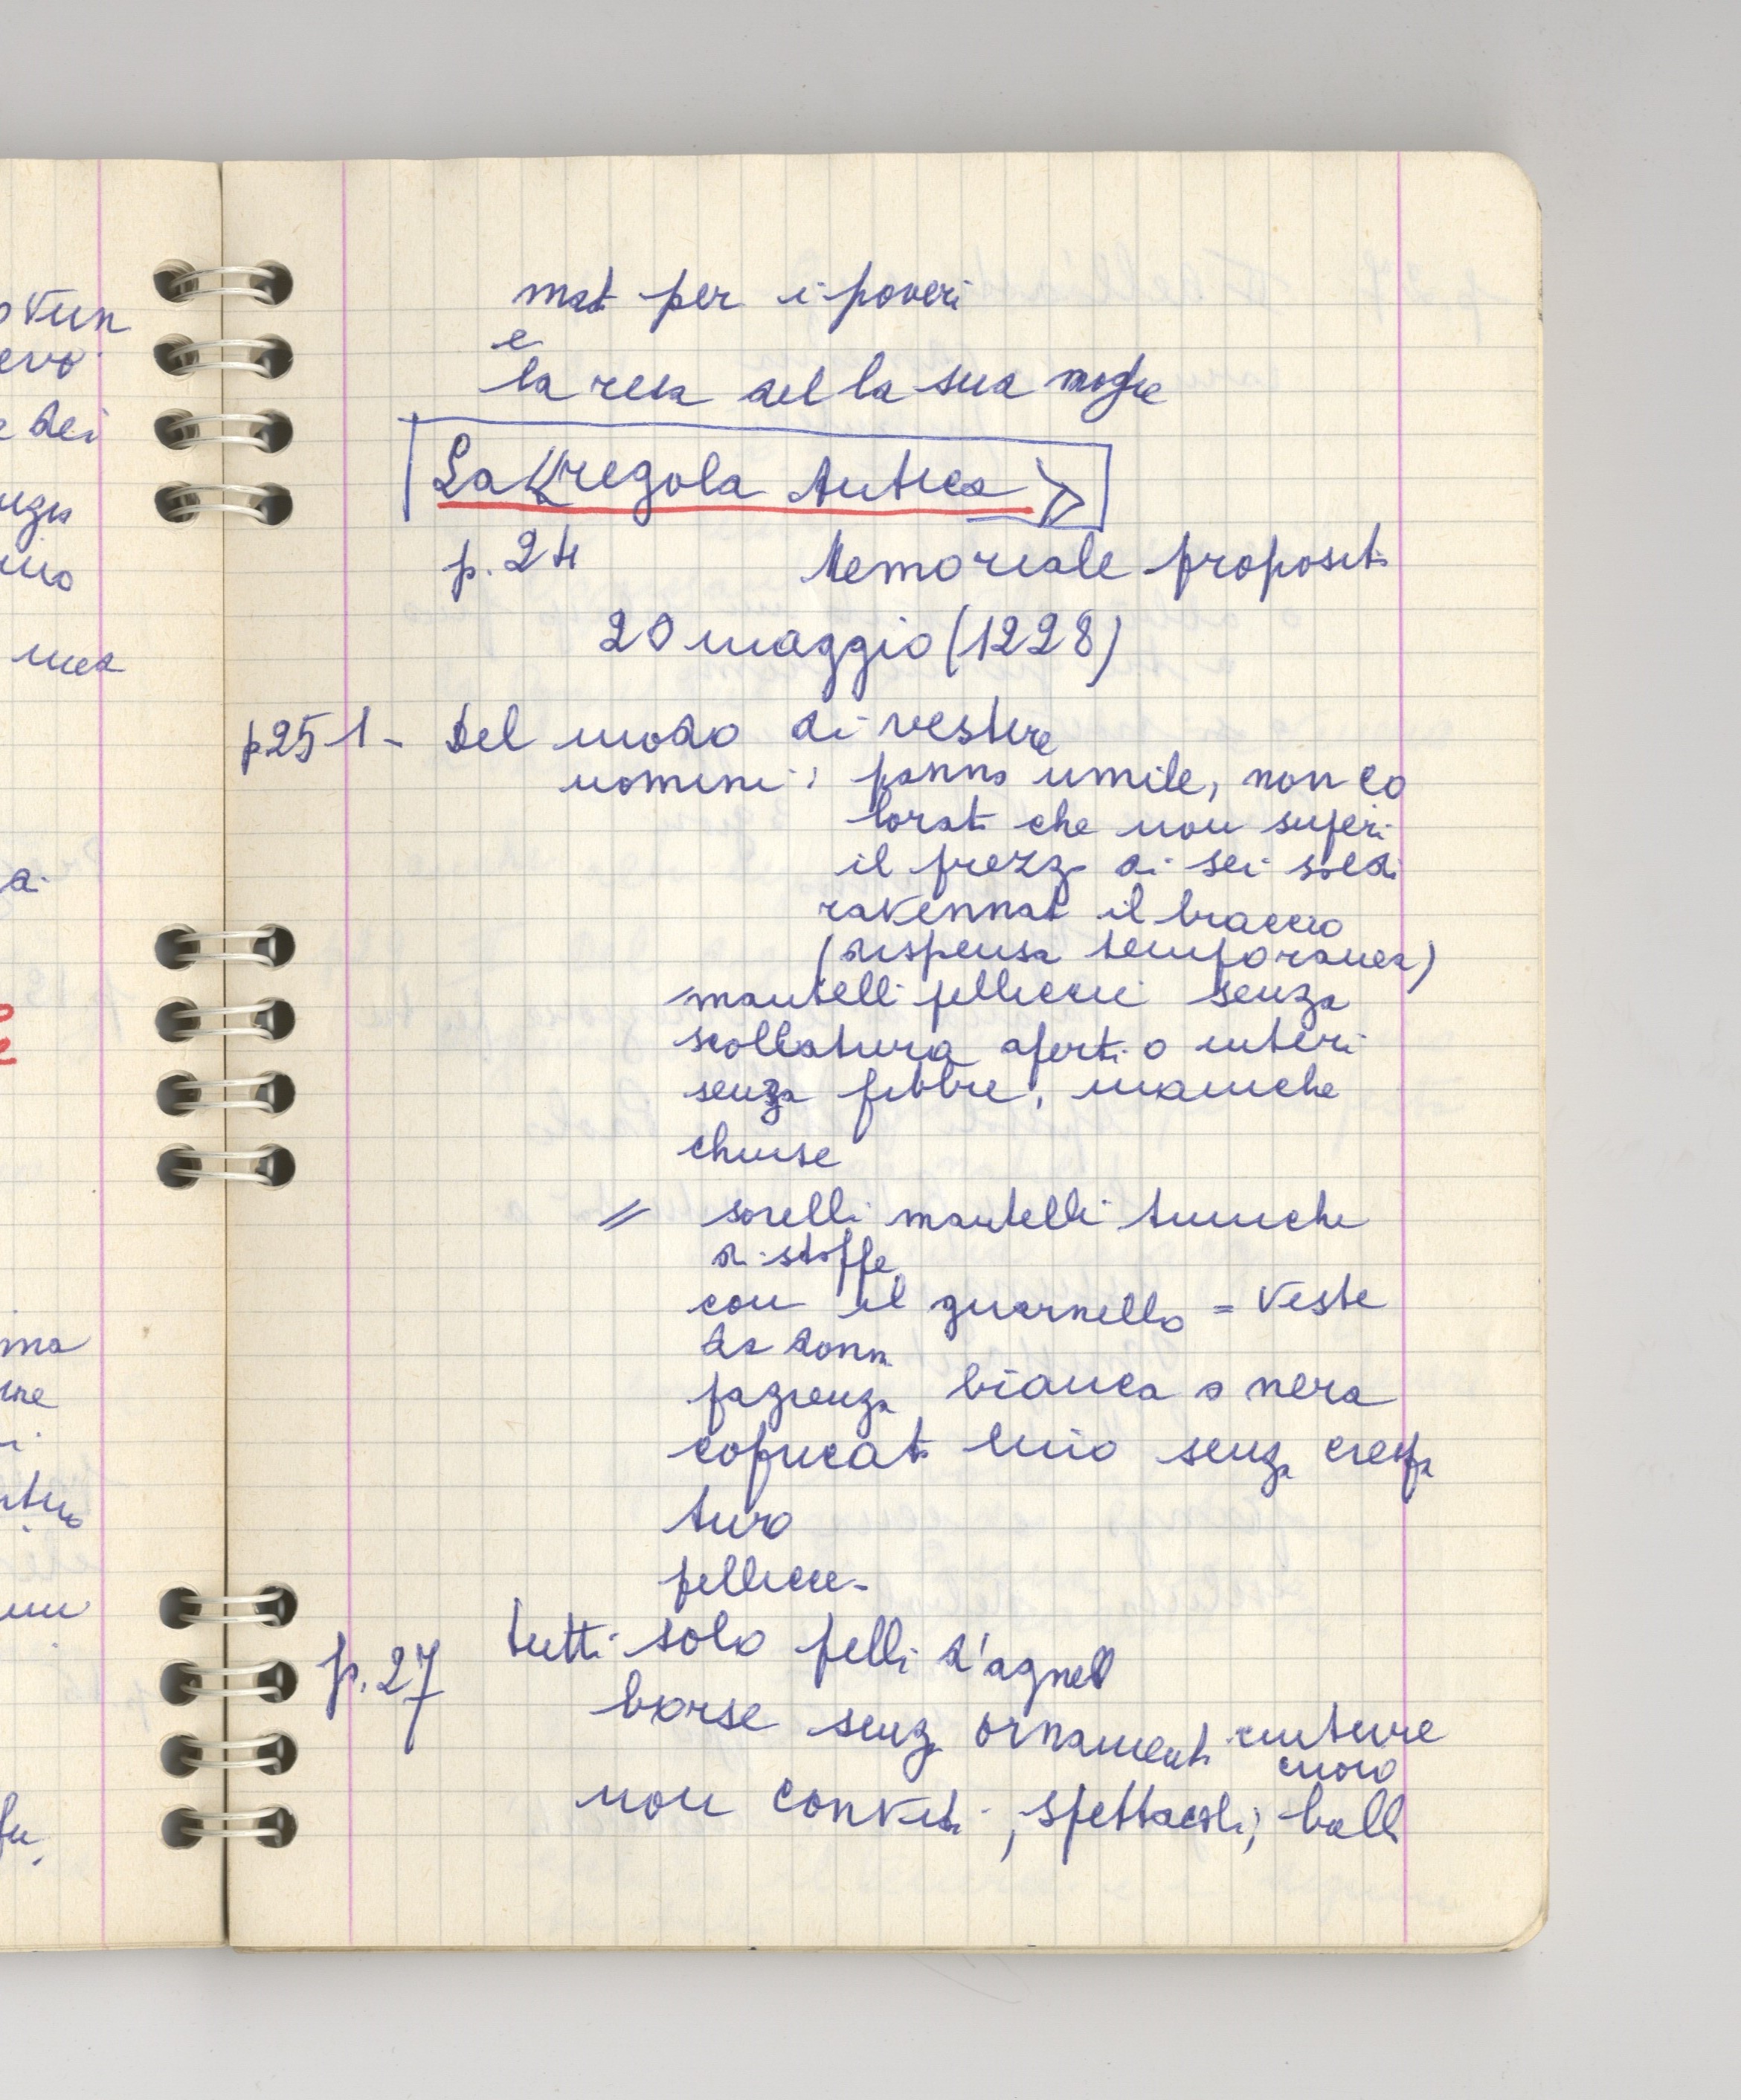 mat per i poveri
e
la resa della sua moglie
La «regola Antica»
p. 24 Memoriale propositi
20 maggio (1228)
p 25 1 - Del modo di vestire
uomini: panno umile, non co
lorati che non superi
il prezzo di sei soldi
ravennati il braccio
(dispensa temporanea)
mantelli pellicce senza
scollatura aperti o interi
senza fibbie, maniche
chiuse
// sorelli mantelli tuniche
di stoffe
con il guarnello = veste
da donn
bianca o nera
lino senza crespa
tura
pellicce -
p. 27 tutti solo pelli d'agnell
borse senza ornamenti cinture
cuoio
non conviti, spettacoli, balli
o Vun
evo
e dei
uzu
ino
mez
a.
ma
ine